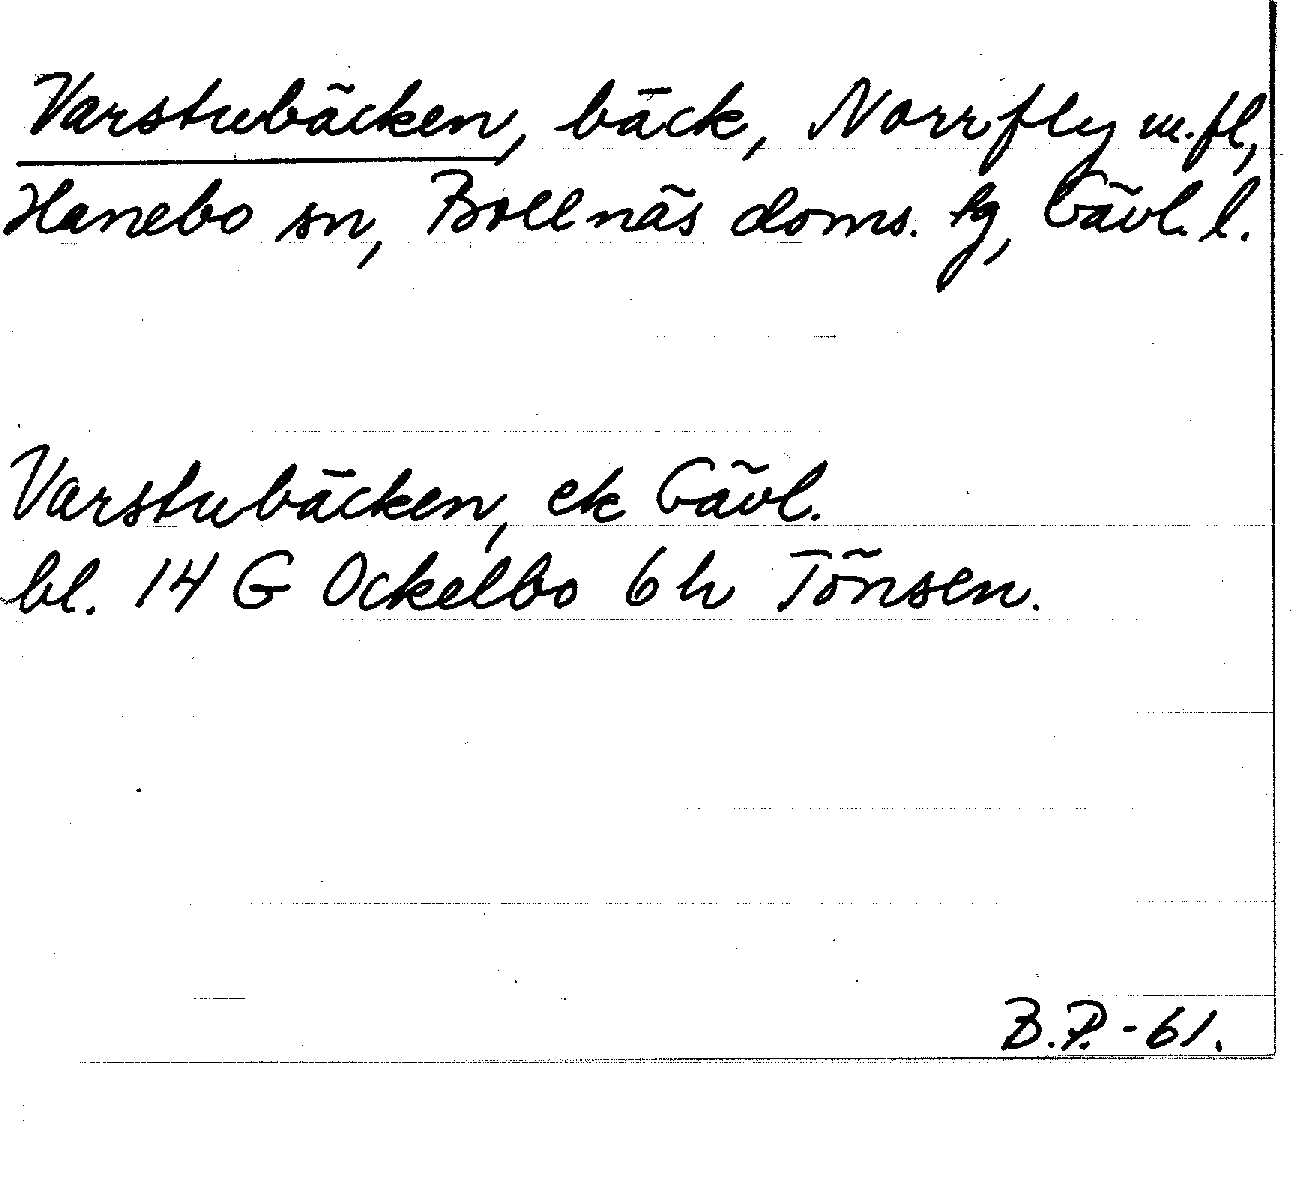 Varstubäcken, bäck, Norrfly m.fl,
Hanebo sn, Bollnäs doms. tg, Gävl. l.
Varstubäcken, ek Gävl.
bl. 14 G Ockelbo 6 h Tönsen.
B.P.-61.